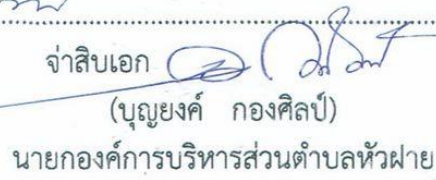 จ่าสิบเอก
(บุญยงค์ กองศิลป์)
นายกองค์การบริหารส่วนตำบลหัวฝาย